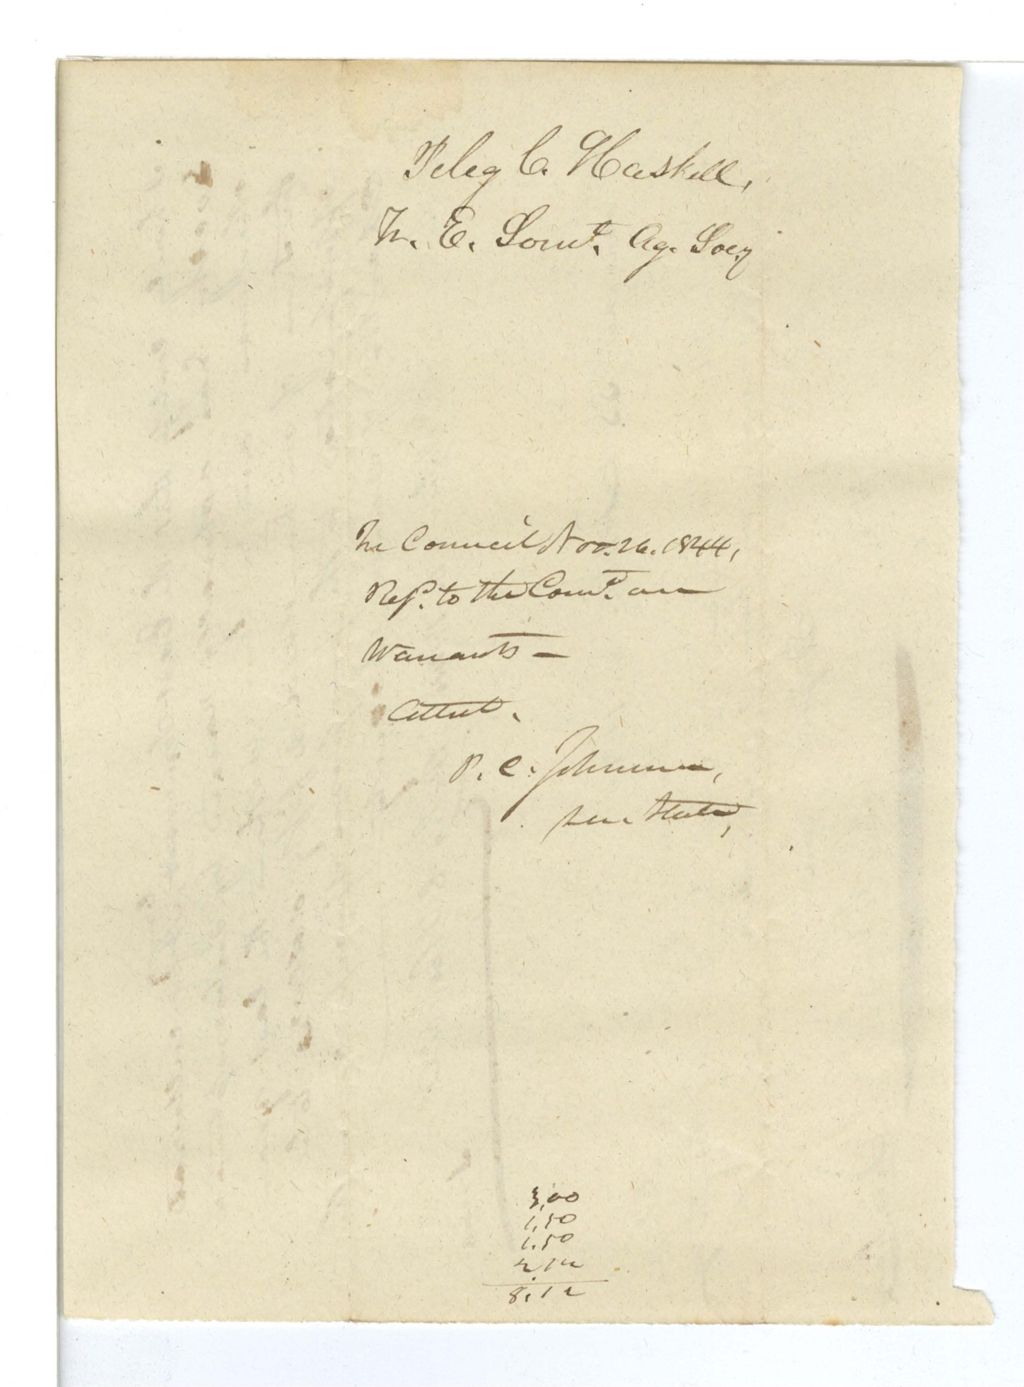 Peleg C. Haskell,
Tr. E. Somt. Ag. Socy
In Council Nov. 26. 1844,
Ref. to the Comt. on
Warrants —
Attest.
P. C. Johnson,
Sec. State,
3,00
1,50
1.50
2.12
8.12